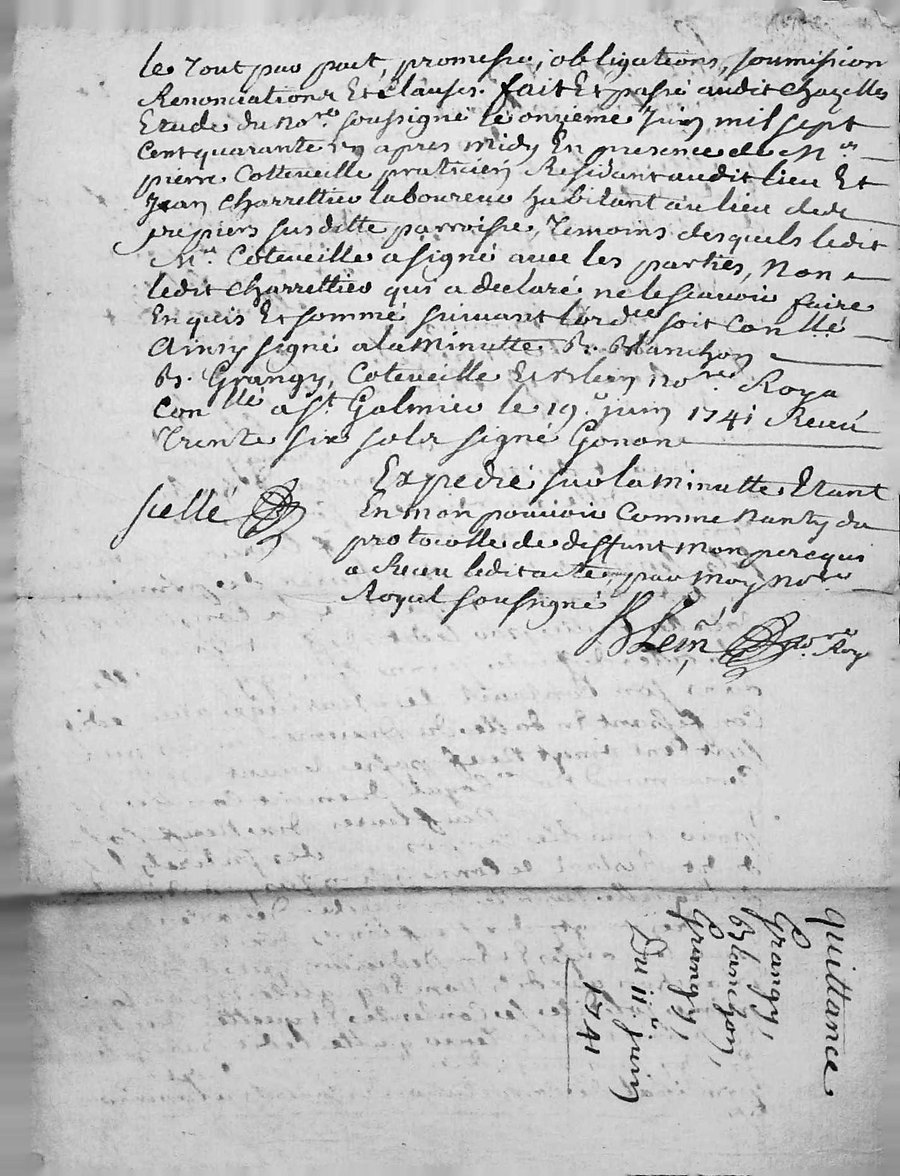 le Tout par pact, promesse, obligations, soumission
Renonciations Et Clauses. fait Et passé audit chazelles
Etude du no.re soussigné le onzieme Juin mil sept
Cent quarante un apres midy En presence de M.r
pierre Cotteveille praticien Residant audit lieu Et
Jean charrettier laboureur habitant au lieu de
susditte parroisse, Temoins desquels ledit
M.r Coteveille a signé avec les parties, Non
ledit charrettier qui a declaré ne le scavoir faire
Enquis Et sommé suivant lord.ce soit Con.llé
Ainsy signé a la Minutte B. Blanchon
B. Grangy, Coteveille Et Blein no.re Roya
Con.llé a S.t Galmier le 19.e juin 1741 Receu
Trente six sols signé Gonon
Expedié sur la Minutte Etant
scellé
En mon pouvoir Comme Nanty du
protocolle de deffunt mon pere qui
a Receu ledit acte, par Moy No.re
Royal soussigné
Blein no.re Roy
quittance
Grangy,
Blanchon,
Grangy,
Du 11.e juin
1741